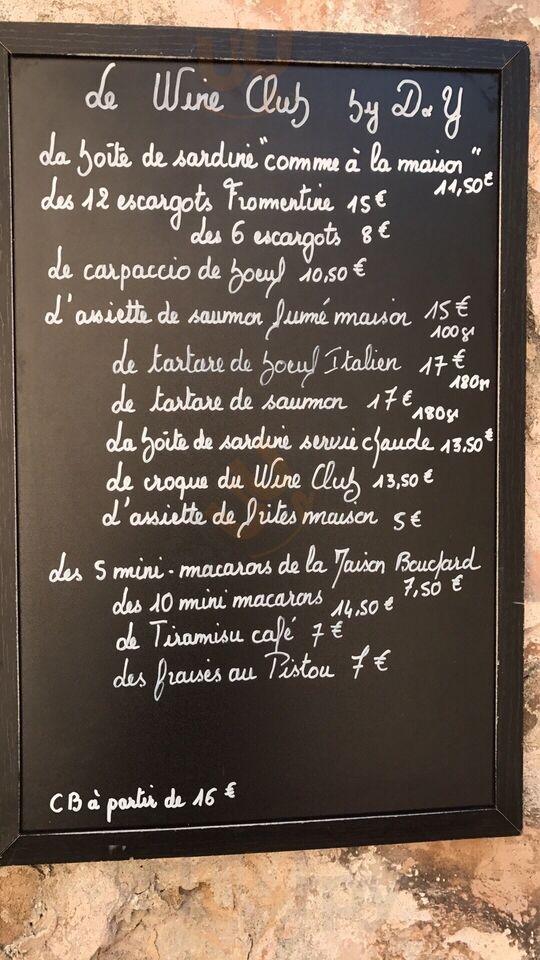 Le Wine Club by D & Y
La boîte de sardine "comme à la maison"
11,50 €
Les 12 escargots Fromentine 15 €
Les 6 escargots 8 €
Le carpaccio de boeuf 10,50 €
L'assiette de saumon fumé maison 15 €
100gr
Le tartare de boeuf Italien 17 €
180gr
Le tartare de saumon 17 €
180gr
La boîte de sardine servie chaude 13,50 €
Le croque du Wine Club 13,50 €
L'assiette de frites maison 5 €
Les 5 mini-macarons de la Maison Bouchard
7,50 €
Les 10 mini macarons 14,50 €
Le Tiramisu café 7 €
Les fraises au Pistou 7 €
CB à partir de 16 €